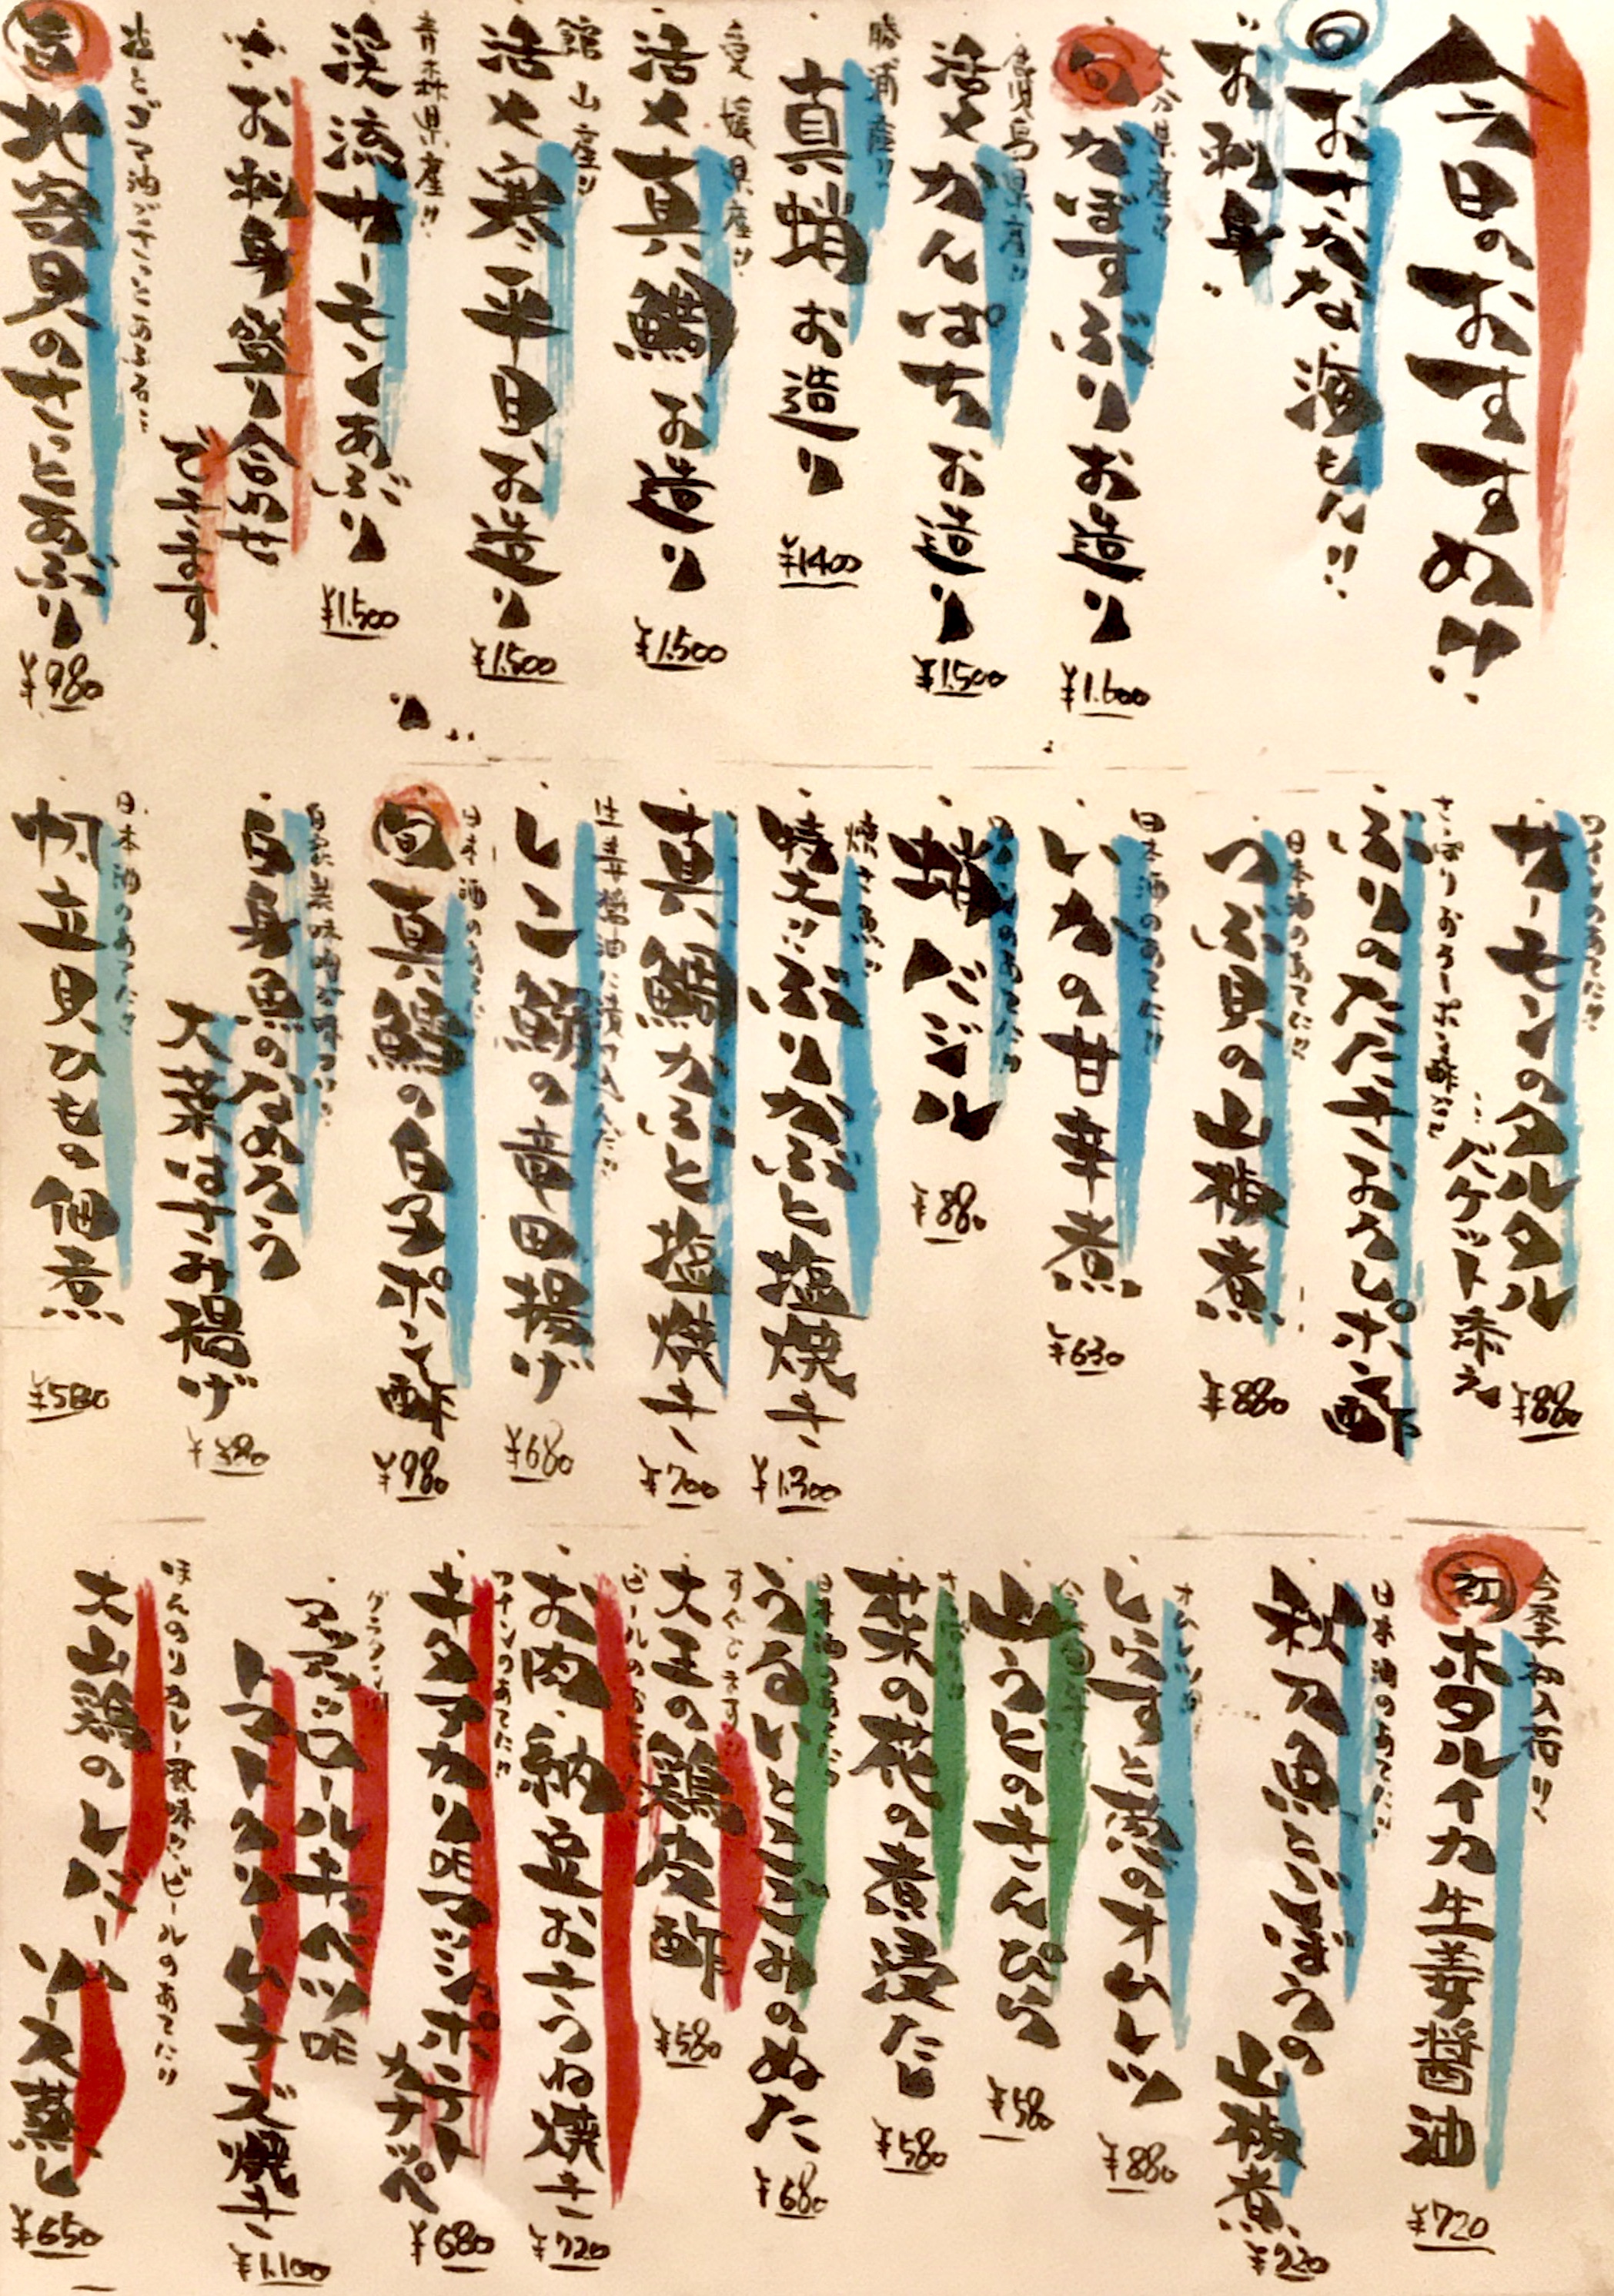 今日のおすすめ!!
旬
おさかな・海もん!!
お刺身
大分県産!!
旬
かぼすぶりお造り
¥1.600
鹿児島県産!!
活〆かんぱちお造り
¥1.500
勝浦産!!
真蛸お造り
¥1400
愛媛県産!!
活〆真鯛お造り
¥1.500
館山産!!
活〆寒平目お造り
¥1.500
青森県産!!
渓流サーモンあぶり
¥1.500
お刺身盛り合わせ
できます
塩とごま油でさっとあぶる
旬
北寄貝のさっとあぶり
¥980
ワインのあてに!!
サーモンのタルタル
バゲット添え
¥880
ぶりのたたきおろしポン酢
日本酒のあてに!!
つぶ貝の山椒煮
¥880
日本酒のあてに!!
いかの甘辛煮
¥630
ワインのあてに!!
蛸バジル
¥880
焼き魚!!
特大!!ぶりかぶと塩焼き
¥1.300
真鯛かぶと塩焼き
¥700
生姜醤油に漬け込んだ!!
しこ鰯の竜田揚げ
¥680
日本酒のあてに!!
旬
真鱈の白子ポン酢
¥980
白身魚のなめろう
大葉はさみ揚げ
日本酒のあてに!!
帆立貝ひもの佃煮
¥580
今季初入荷!!
初
ホタルイカ生姜醤油
¥720
日本酒のあてに!!
秋刀魚とごぼうの
山椒煮
しらすと葱のオムレツ
¥880
山うどのきんぴら
¥580
菜の花の煮浸たし
¥580
日本酒のあてに!!
うるいとこごみのぬた
¥680
すぐでます!!
大王の鶏皮酢
¥580
お肉、納豆おきつね焼き
¥720
ワインのあてに!!
キタアカリDEアンチョビポテト
カナッペ
¥680
グラタン風
マッシュロールキャベツDE
トマトクリームチーズ焼き
¥1.100
ほんのりカレー風味でビールのあてに!!
大山鶏のレバー
ソース蒸し
¥650